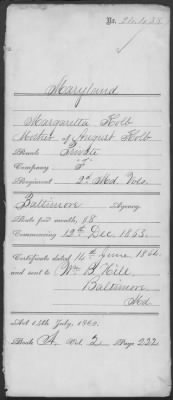 No.
Maryland
Margaretta Kolb
Mother of August Kolb
Rank Private
Company "F"
Regiment 2d Md. Vols.
Baltimore Agency
Rate per month, $8
Commencing 12th Dec. 1863.
Certificate dated 14th June 1864.
and sent to Wm B. Hill,
Baltimore
Md
Act 14th July, 1862.
Book A Vol. 2 Page 222